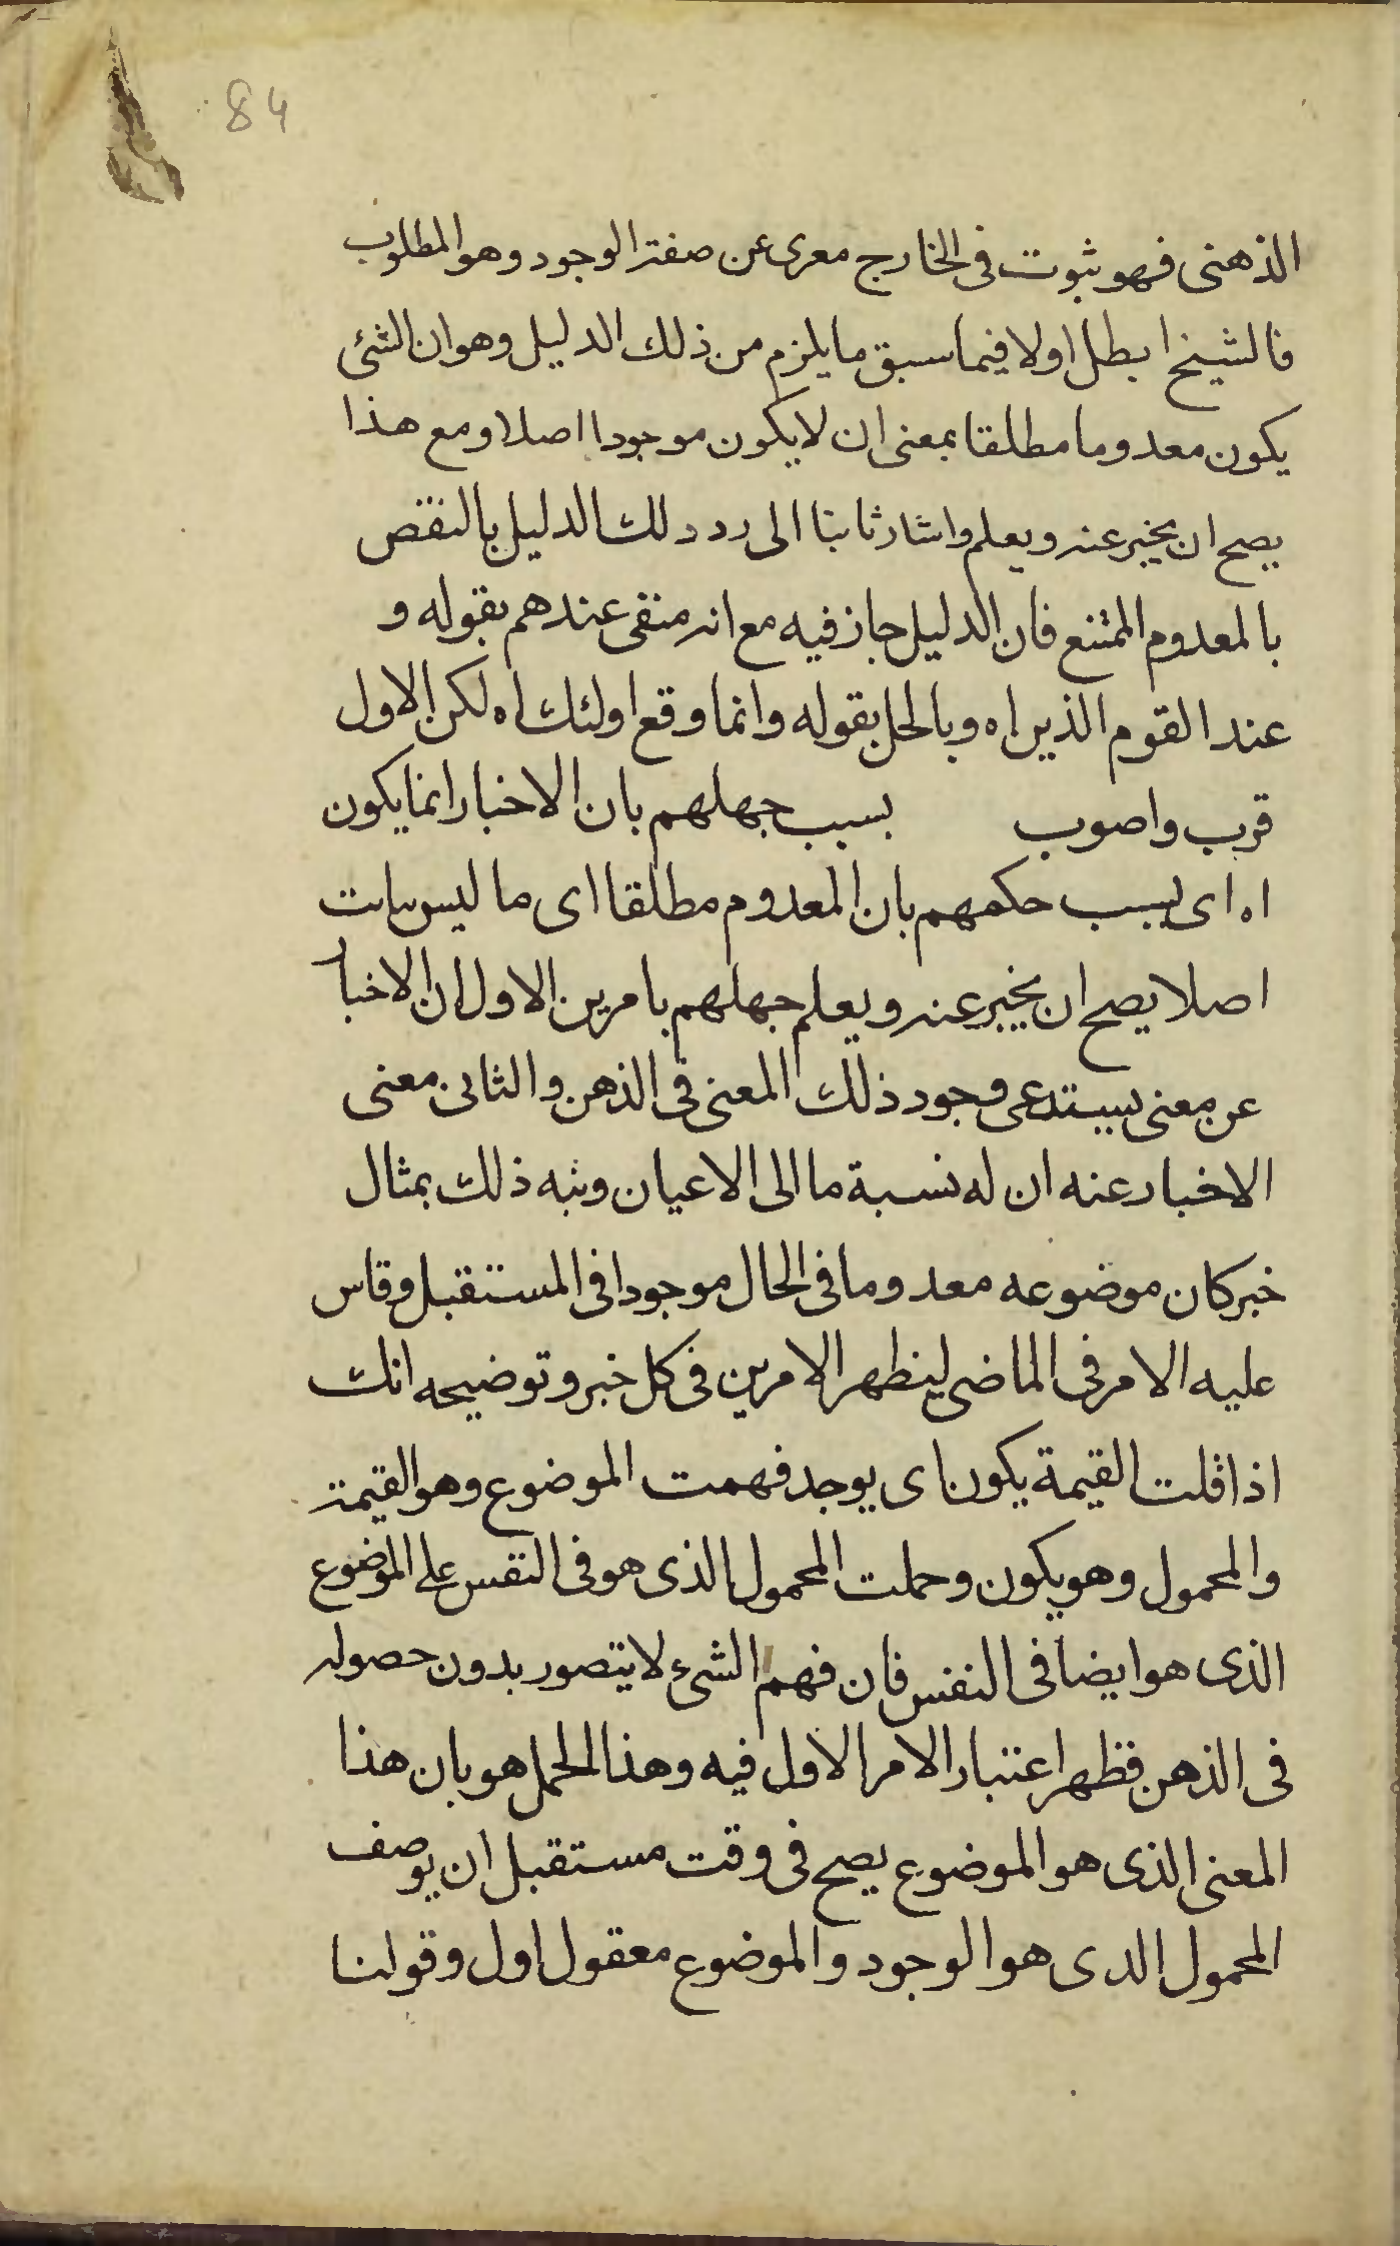 84
الذهنى فهو ثبوت فى الخارج معرى عن صفة الوجود وهو المطلوب
فالشيخ ابطل اولا فيما سبق ما يلزم من ذلك الدليل وهو ان الشئ
يكون معدوما مطلقا بمعنى ان لا يكون موجودا اصلا ومع هذا
يصح ان يخبر عنه ويعلم واشار ثانيا الى رد دلك الدليل بالنقض
بالمعدوم الممتنع فان الدليل جاز فيه مع انه منفى عندهم بقوله و
عند القوم الذين اه وبالحل بقوله وانما وقع اولئك اه لكن الاول
قرب واصوب بسبب جهلهم بان الاخبار انما يكون
اه اى بسبب حكمهم بان المعدوم مطلقا اى ما ليس بثابت
اصلا يصح ان يخبر عنه ويعلم جهلهم بامرين الاول ان الاخبار
عن معنى يستدعى وجود ذلك المعنى فى الذهن والثانى معنى
الاخبار عنه ان له نسبة ما الى الاعيان ونبه ذلك بمثال
خبر كان موضوعه معدوما فى الحال موجودا فى المستقبل وقاس
عليه الامر فى الماضى لينظهر الامرين فى كل خبر وتوضيحه انك
اذا قلت القيمة يكون اى يوجد فهمت الموضوع وهو القيمة
والمحمول وهو يكون وحملت المحمول الذى هو فى النفس على الموضوع
الذى هو ايضا فى النفس فان فهم الشىء لا يتصور بدون حصوله
فى الذهن فظهر اعتبار الامر الاول فيه وهذا الحمل هو بان هذا
المعنى الذى هو الموضوع يصح فى وقت مستقبل ان يوصف
المحمول الدى هو الوجود والموضوع معقول اول وقولنا